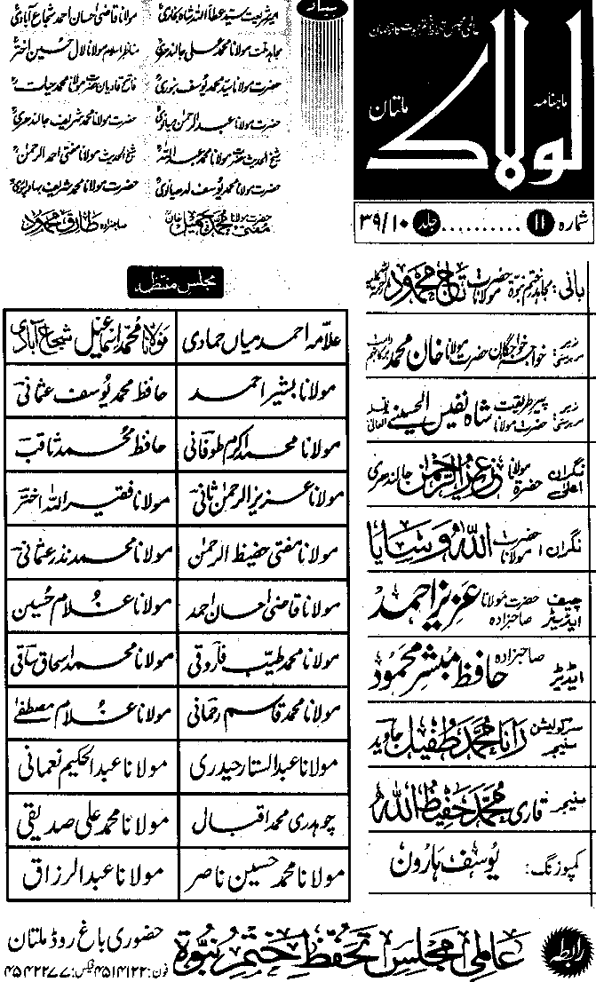 عالمی مجلس تحفظ ختم نبوت کا ترجمان
ماہنامہ
لولاک
ملتان
شمارہ ۱۱ .......... جلد ۳۹/۱۰
بیاد
امیر شریعت سید عطاء اللہ شاہ بخاریؒ
مولانا قاضی احسان احمد شجاع آبادیؒ
مجاہد ملت مولانا محمد علی جالندھریؒ
مناظر اسلام مولانا لال حسین اخترؒ
حضرت مولانا سید محمد یوسف بنوریؒ
فاتح قادیان حضرت مولانا محمد حیاتؒ
حضرت مولانا عبد الرحمٰن میانویؒ
حضرت مولانا محمد شریف جالندھریؒ
شیخ الحدیث حضرت مولانا محمد عبد اللہؒ
شیخ الحدیث مولانا مفتی احمد الرحمٰنؒ
حضرت مولانا محمد یوسف لدھیانویؒ
حضرت مولانا محمد شریف بہاولپوریؒ
حضرت مولانا مفتی محمد جمیل خانؒ
صاحبزادہ طارق محمودؒ
بانی: مجاہد ختم نبوۃ حضرت مولانا تاج محمودؒ
زیر سرپرستی: خواجہ خواجگان حضرت مولانا خان محمد
زیر سرپرستی: پیر طریقت حضرت مولانا شاہ نفیس الحسینی
نگران اعلیٰ: حضرۃ مولانا عزیز الرحمٰن جالندھری
نگران: حضرت مولانا اللہ وسایا
چیف ایڈیٹر: حضرت مولانا صاحبزادہ عزیز احمد
ایڈیٹر: صاحبزادہ حافظ مبشر محمود
سرکولیشن منیجر: رانا محمد طفیل جاوید
منیجر: قاری محمد حفیظ اللہ
کمپوزنگ: یوسف ہارون
مجلس منتظمہ
علامہ احمد میاں حمادی
مولانا محمد اسماعیل شجاع آبادی
مولانا بشیر احمد
حافظ محمد یوسف عثمانی
مولانا محمد اکرم طوفانی
حافظ محمد ثاقب
مولانا عزیز الرحمٰن ثانی
مولانا فقیر اللہ اختر
مولانا مفتی حفیظ الرحمٰن
مولانا محمد نذر عثمانی
مولانا قاضی احسان احمد
مولانا غلام حسین
مولانا محمد طیب فاروقی
مولانا محمد اسحاق ساقی
مولانا محمد قاسم رحمانی
مولانا غلام مصطفےٰ
مولانا عبد الستار حیدری
مولانا عبد الحکیم نعمانی
چوہدری محمد اقبال
مولانا محمد علی صدیقی
مولانا محمد حسین ناصر
مولانا عبد الرزاق
رابطہ
عالمی مجلس تحفظ ختم نبوۃ
حضوری باغ روڈ ملتان
فون: ۴۵۱۴۱۲۲ فیکس: ۴۵۴۲۲۷۷